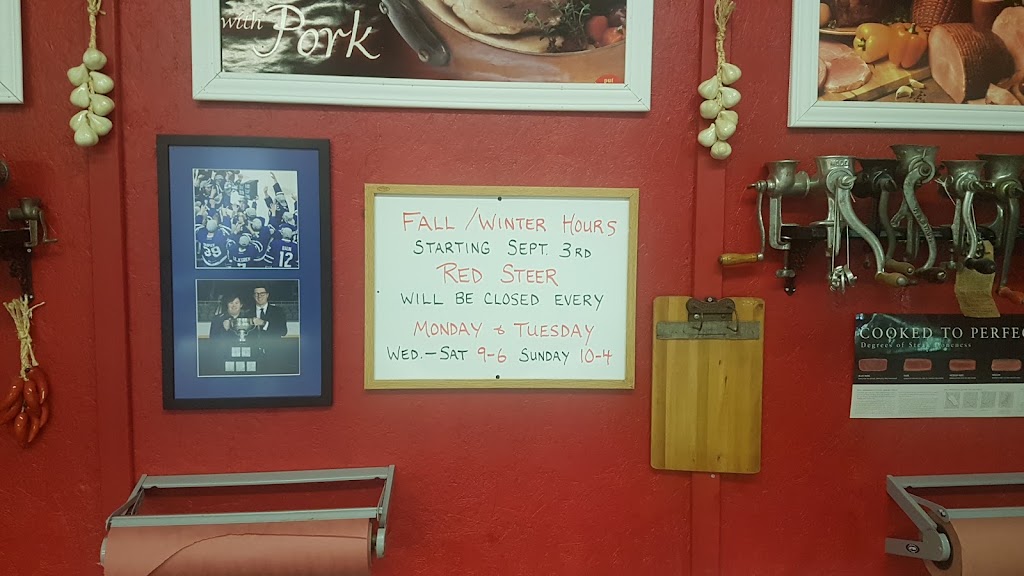 with Pork
FALL/WINTER HOURS
STARTING SEPT. 3RD
RED STEER
WILL BE CLOSED EVERY
MONDAY & TUESDAY
WED.-SAT 9-6 SUNDAY 10-4
39
12
COOKED TO PERFE
Degrees of Steak Doneness